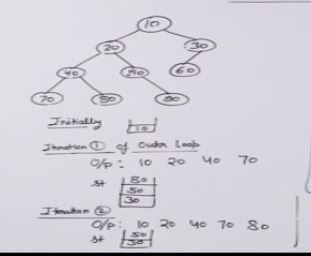 10
20 30
40 50 60
70 80 90
Initially 10
Iteration ① of Outer Loop
O/p: 10 20 40 70
st 80
50
30
Iteration ②
O/p: 10 20 40 70 80
st 50
30